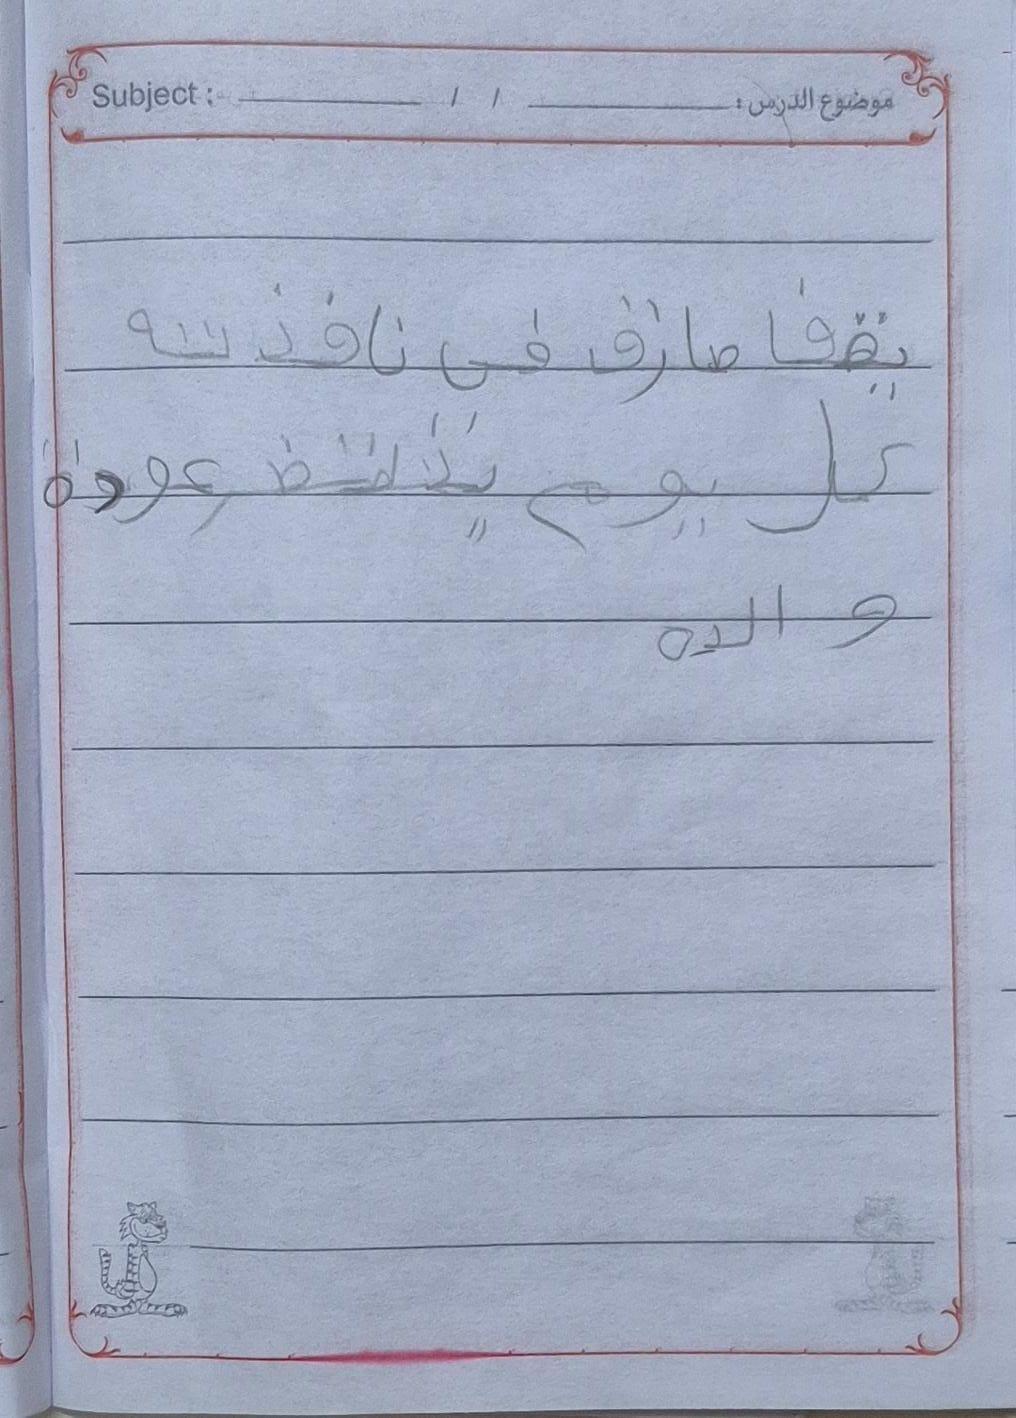 Subject : / / موضوع الدرس :
يقفا طارق في نافذته
كل يوم ينتظر عودة
والده